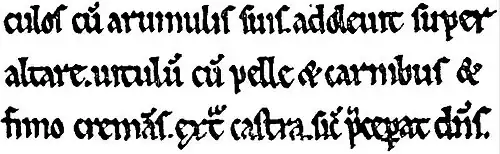 culos cū aruinulis suis. adoleuit super
altare. uitulū cū pelle & carnibus &
fimo cremās. extᵃ castra. sic̄ p̄ceꝑat dn̄s.